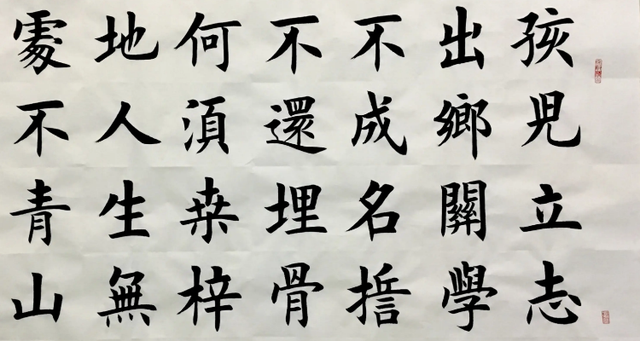 孩児立志
出鄉關學
不成名誓
不還埋骨
何湏桒梓
地人生無
處不青山